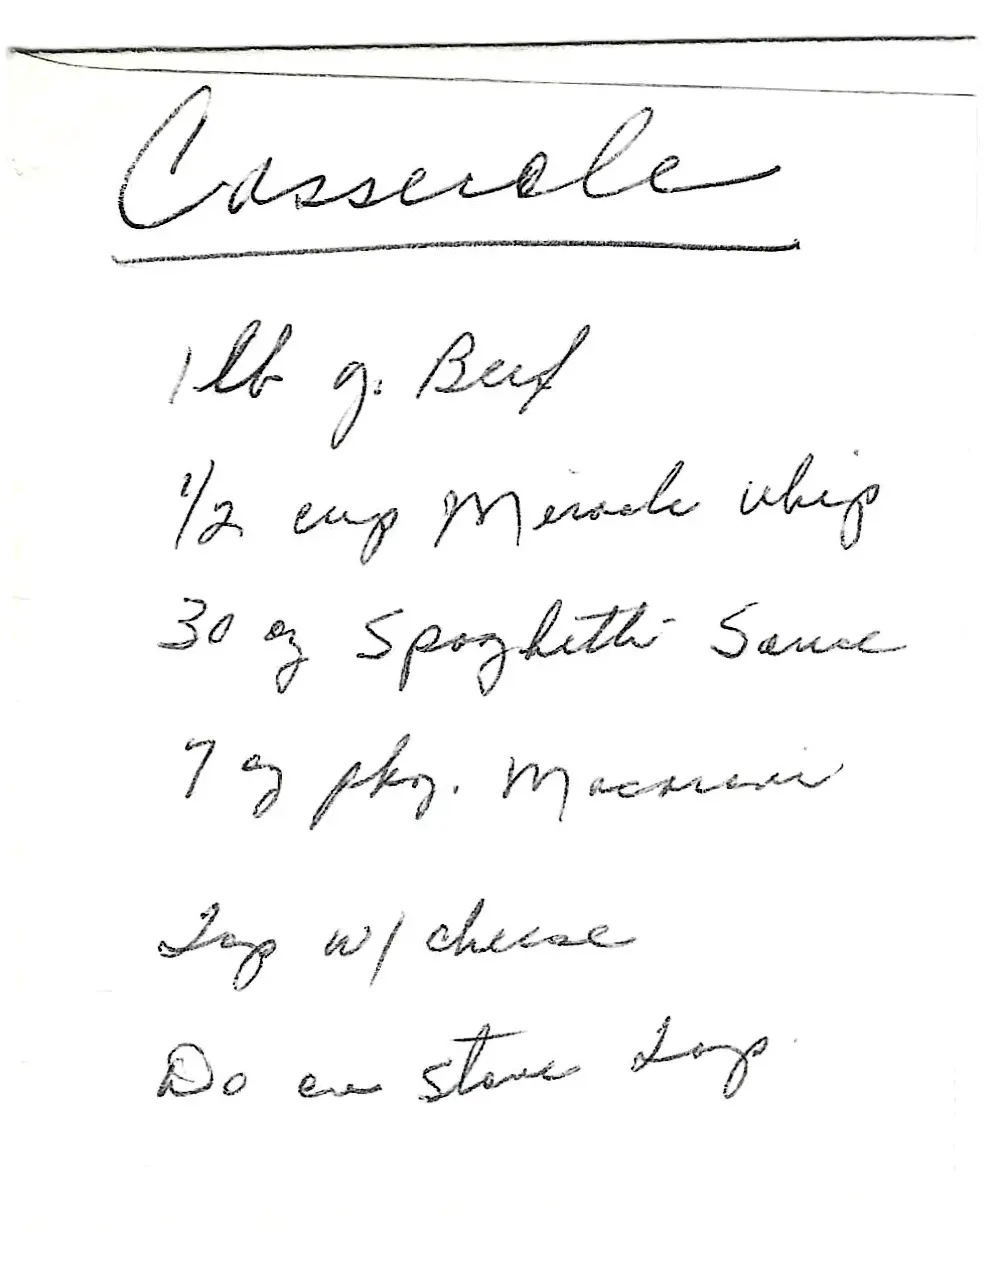 Casserole
1 lb g. Beef
1/2 cup Miracle whip
30 oz Spaghetti Sauce
7 oz pkg. Macaroni
Top w/ cheese
Do on stove top.